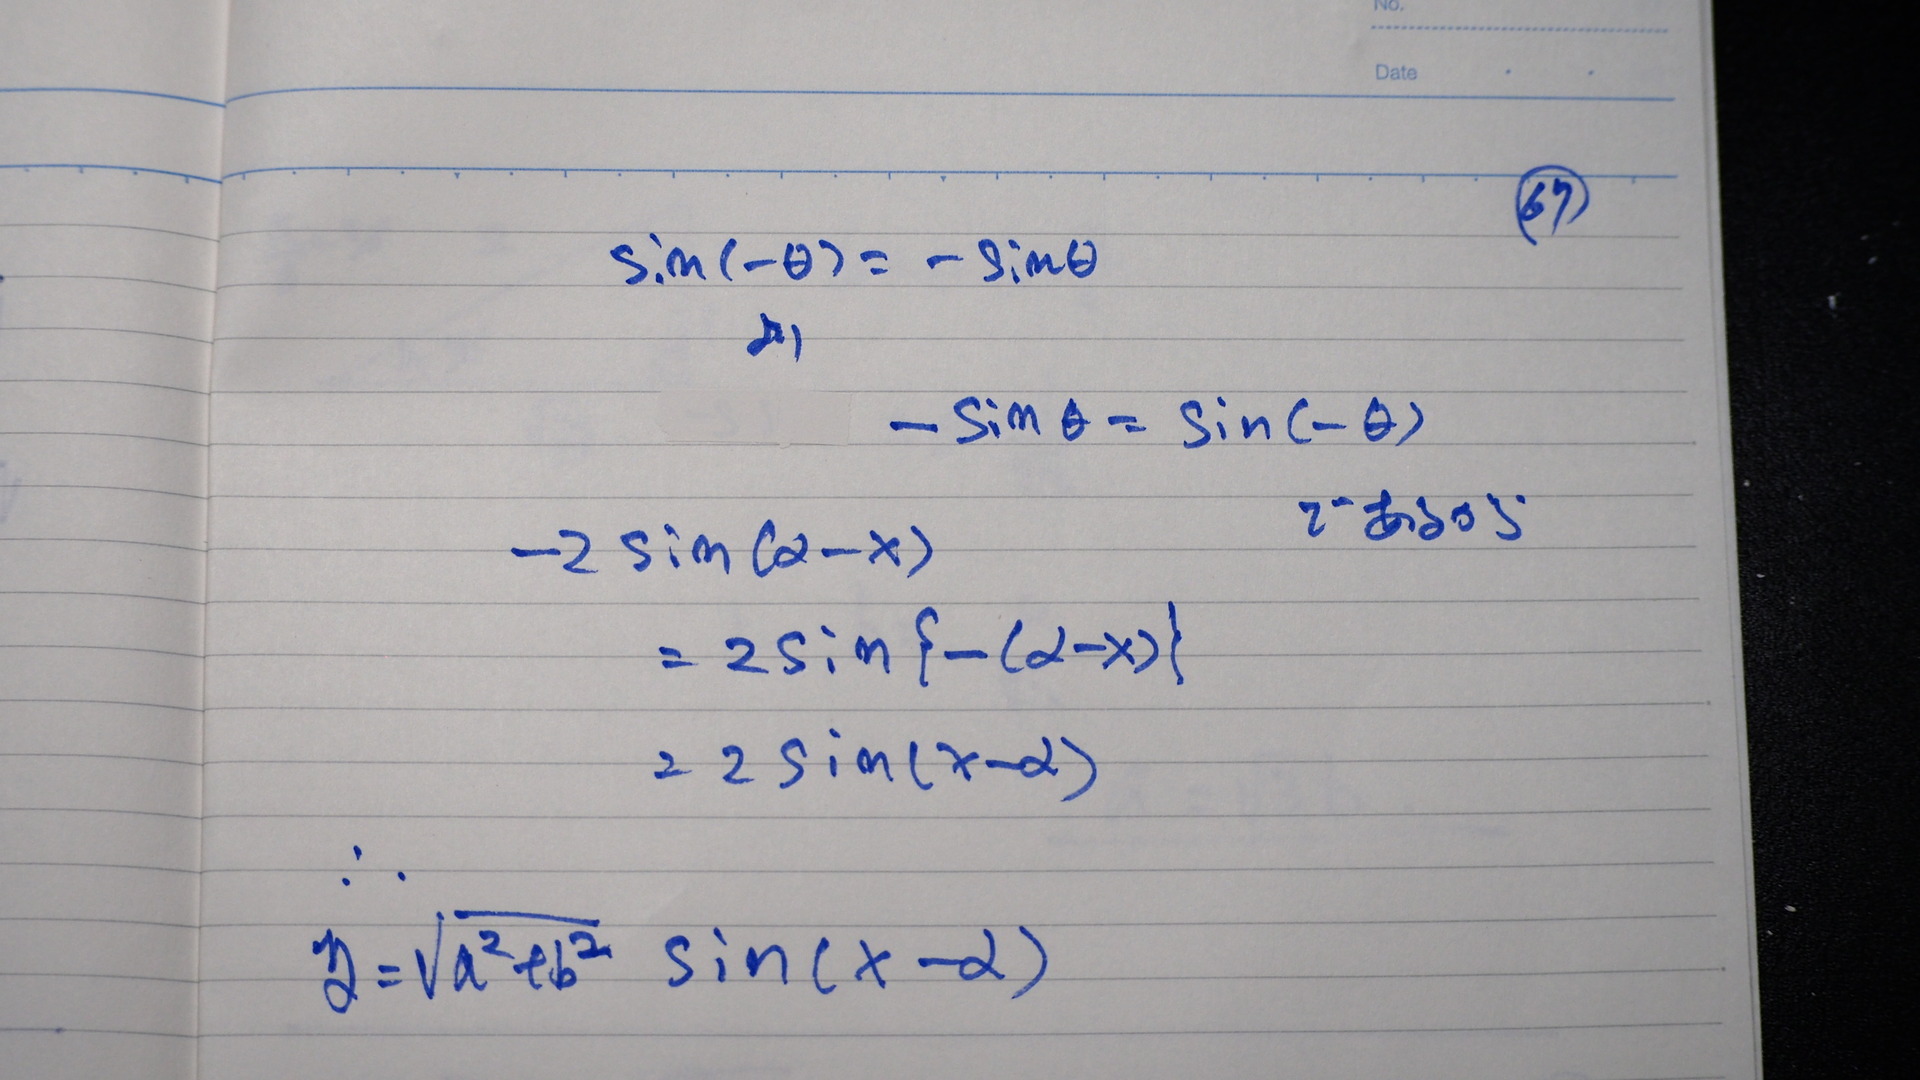 No.
Date
67
sin(-θ) = - sinθ
より
- sin θ = sin(- θ)
であるから
-2 sin(α-x)
= 2 sin{-(α-x)}
= 2 sin(x-α)
∴
y = √a²+b² sin(x-α)